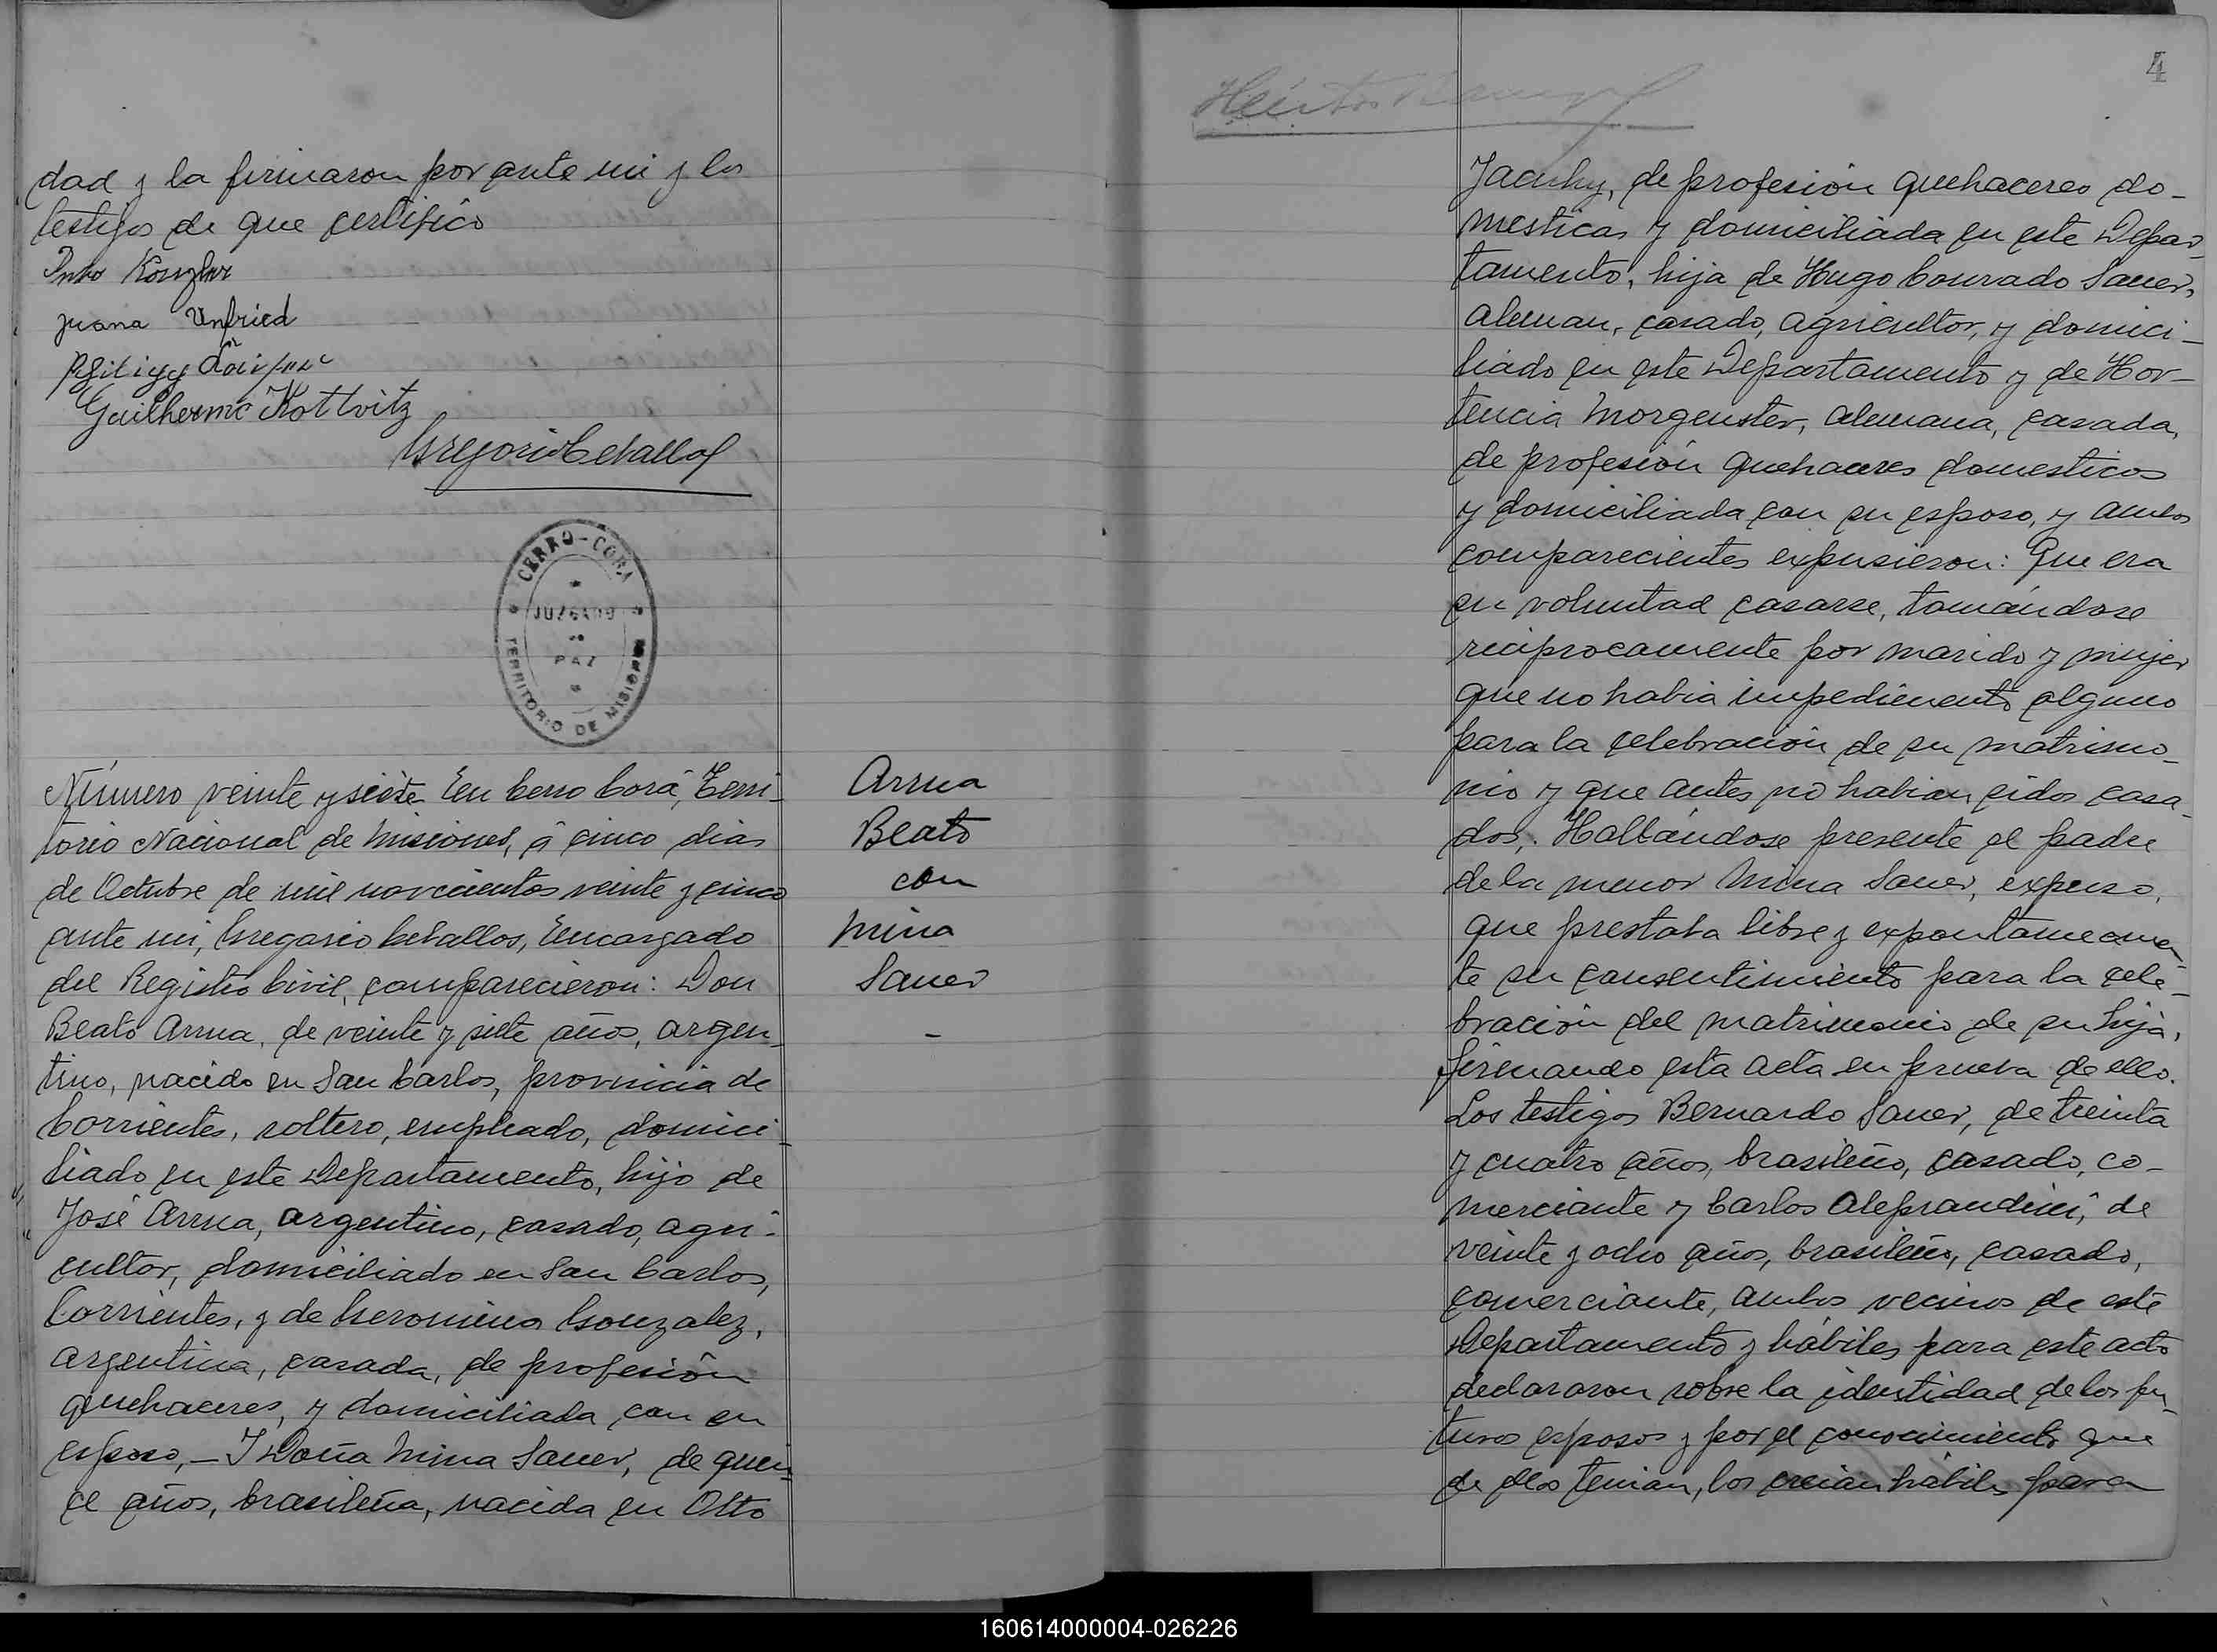 dad y la firmaron por ante mi y los
testigos de que certifico
Juana Unfried
Guilherme Kottvitz
Gregorio Cevallos
CERRO-CORA
JUZGADO
DE
PAZ
TERRITORIO DE MISIONES
Número veinte y siete En Cerro Corá, Terri-
torio Nacional de Misiones, á cinco dias
de Octubre de mil novecientos veinte y cinco
ante mi, Gregorio Cevallos, Encargado
del Registro Civil, comparecieron: Don
Beato Arrua, de veinte y siete años, argen-
tino, nacido en San Carlos, provincia de
Corrientes, soltero, empleado, domici-
liado en este Departamento, hijo de
José Arrua, argentino, casado, agri-
cultor, domiciliado en San Carlos,
Corrientes, y de Geronima Gonzalez,
argentina, casada, de profesión
quehaceres, y domiciliada con su
esposo,- Y Doña Mina Sauer, de quin-
ce años, brasileña, nacida en Alto
Arrua
Beato
con
Mina
Sauer
-
4
Jacuhy, de profesión quehaceres do-
mesticas y domiciliada en este Depar-
tamento, hija de Hugo Conrado Sauer,
aleman, casado, agricultor, y domici-
liado en este Departamento y de Hor-
tencia Morgenster, alemana, casada,
de profesión quehaceres domesticos
y domiciliada con su esposo, y ambos
comparecientes expusieron: Que era
su voluntad casarse, tomándose
reciprocamente por marido y mujer
que no habia impedimento alguno
para la celebración de su matrimo-
nio y que antes no habian sidos casa-
dos,. Hallándose presente el padre
de la menor Mina Sauer, expuso,
que prestaba libre y expontaneamen
te su consentimiento para la cele-
bración del matrimonio de su hija,
firmando esta acta en prueba de ello.
Los testigos Bernardo Sauer, de treinta
y cuatro años, brasileño, casado, co-
merciante y Carlos Aleprandini, de
veinte y ocho años, brasileño, casado,
comerciante, ambos vecinos de este
Departamento y hábiles para este acto
declararon sobre la identidad de los fu-
turos esposos y por el conocimiento que
de ellos tenian, los creian hábiles para
160614000004-026226